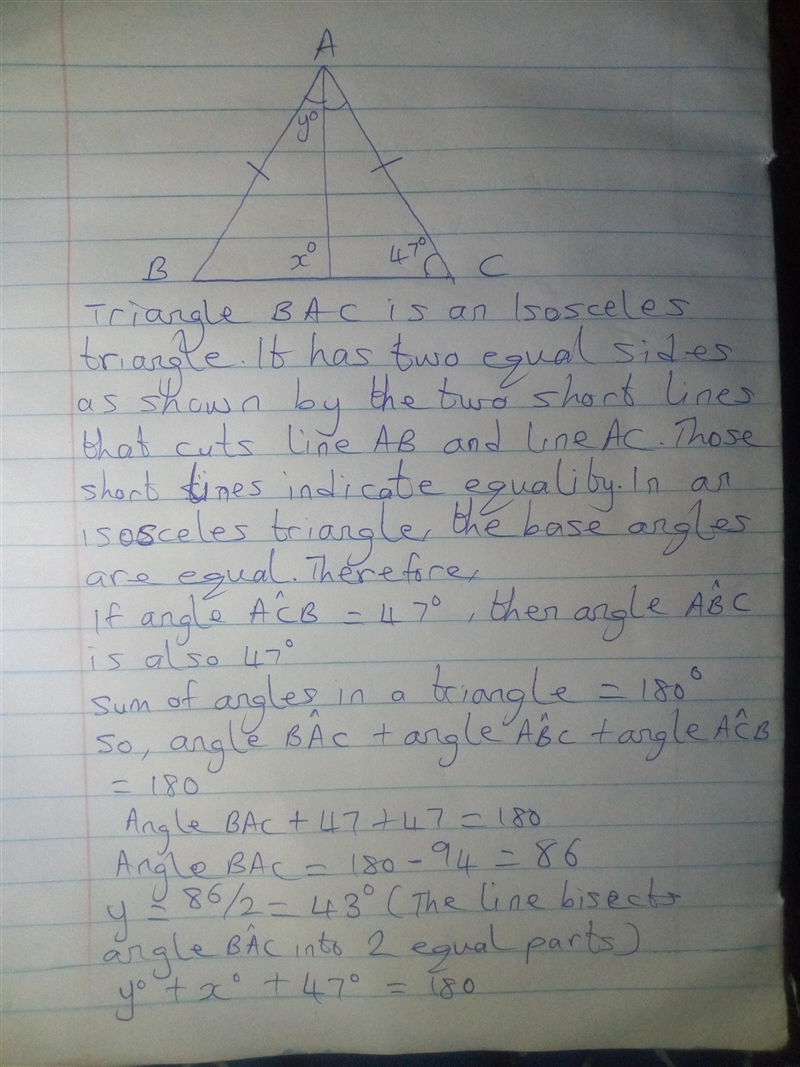 A
y°
x° 47°
B C
Triangle BAC is an Isosceles
triangle. It has two equal sides
as shown by the two short lines
that cuts line AB and line AC. Those
short lines indicate equality. In an
isosceles triangle, the base angles
are equal. Therefore,
If angle AĈB = 47°, then angle AB̂C
is also 47°
sum of angles in a triangle = 180°
So, angle BÂC + angle AB̂C + angle AĈB
= 180
Angle BAC + 47 + 47 = 180
Angle BAC = 180 - 94 = 86
y = 86/2 = 43° (The line bisects
angle BÂC into 2 equal parts)
y° + x° + 47° = 180